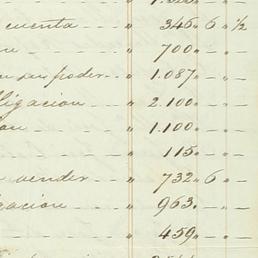 cuenta " 346 " 6 " ½
" 700 " " 
en su poder " 1.087 " "
ligacion " 2.100 " "
on " 1.100 " "
" 115 " "
vender " 732 " 6 "
gacion " 963 " "
" 459 " "